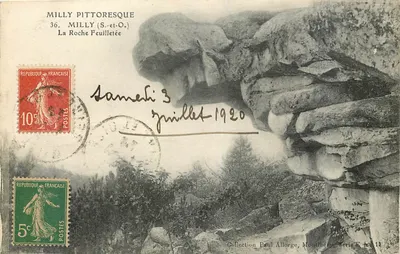 MILLY PITTORESQUE
36. MILLY (S.-et-O.)
La Roche Feuilletée
REPUBLIQUE FRANÇAISE
10c
Samedi 3
Juillet 1920
REPUBLIQUE FRANÇAISE
5c
Collection Paul Allorge,